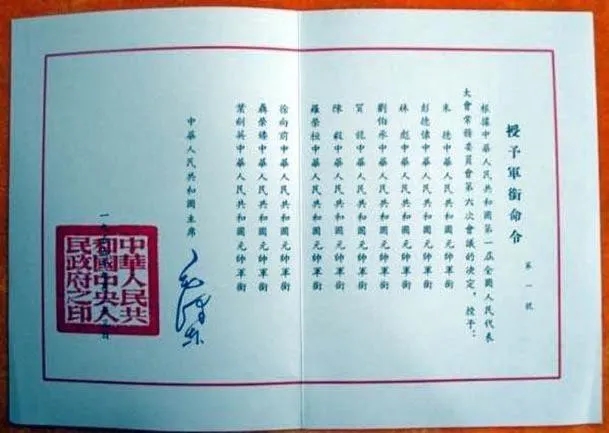 授予軍銜命令
第一號
根據中華人民共和國第一屆全國人民代表
大會常務委員會第六次會議的決定，授予：
朱 德中華人民共和國元帥軍銜
彭德懷中華人民共和國元帥軍銜
林 彪中華人民共和國元帥軍銜
劉伯承中華人民共和國元帥軍銜
賀 龍中華人民共和國元帥軍銜
陳 毅中華人民共和國元帥軍銜
羅榮桓中華人民共和國元帥軍銜
徐向前中華人民共和國元帥軍銜
聶榮臻中華人民共和國元帥軍銜
葉劍英中華人民共和國元帥軍銜
中華人民共和國主席
毛澤東
中華人民共
和國中央人
民政府之印